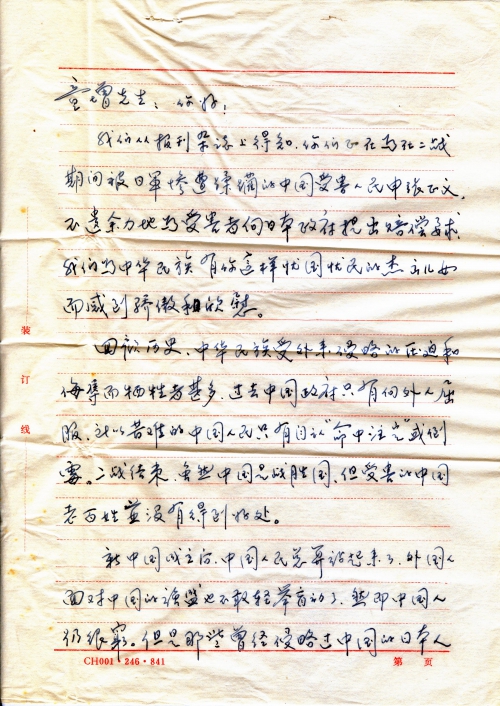 童增先生:你好!
我们从报刊杂志上得知,你们正在为在二战
期间被日军惨遭蹂躏的中国受害人民申张正义,
不遗余力地为受害者向日本政府提出赔偿要求
我们为中华民族有你这样忧国忧民的杰出儿女
而感到骄傲和欣慰。
回顾历史,中华民族受外来侵略的压迫和
侮辱而牺牲者甚多,过去中国政府只有向外人屈
服,所以苦难的中国人民只有自认“命中注定”或倒
霉。二战结束,虽然中国是战胜国,但受害的中国
老百姓并没有得到好处。
新中国成立后,中国人民总算站起来了,外国人
面对中国的强盛也不敢轻举妄动了,然即中国人
仍很穷。但是那些曾经侵略过中国的日本人
装
订
线
CH001·246·841
第 页